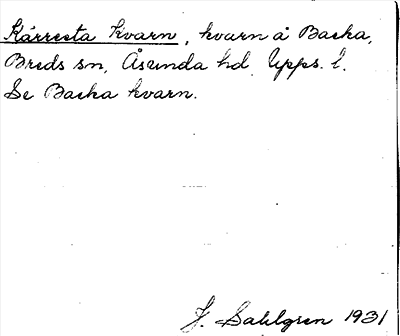 Kårresta kvarn, kvarn å Backa,
Breds sn, Åsunda hd, Upps. l.
Se Backa kvarn.
J. Sahlgren 1931